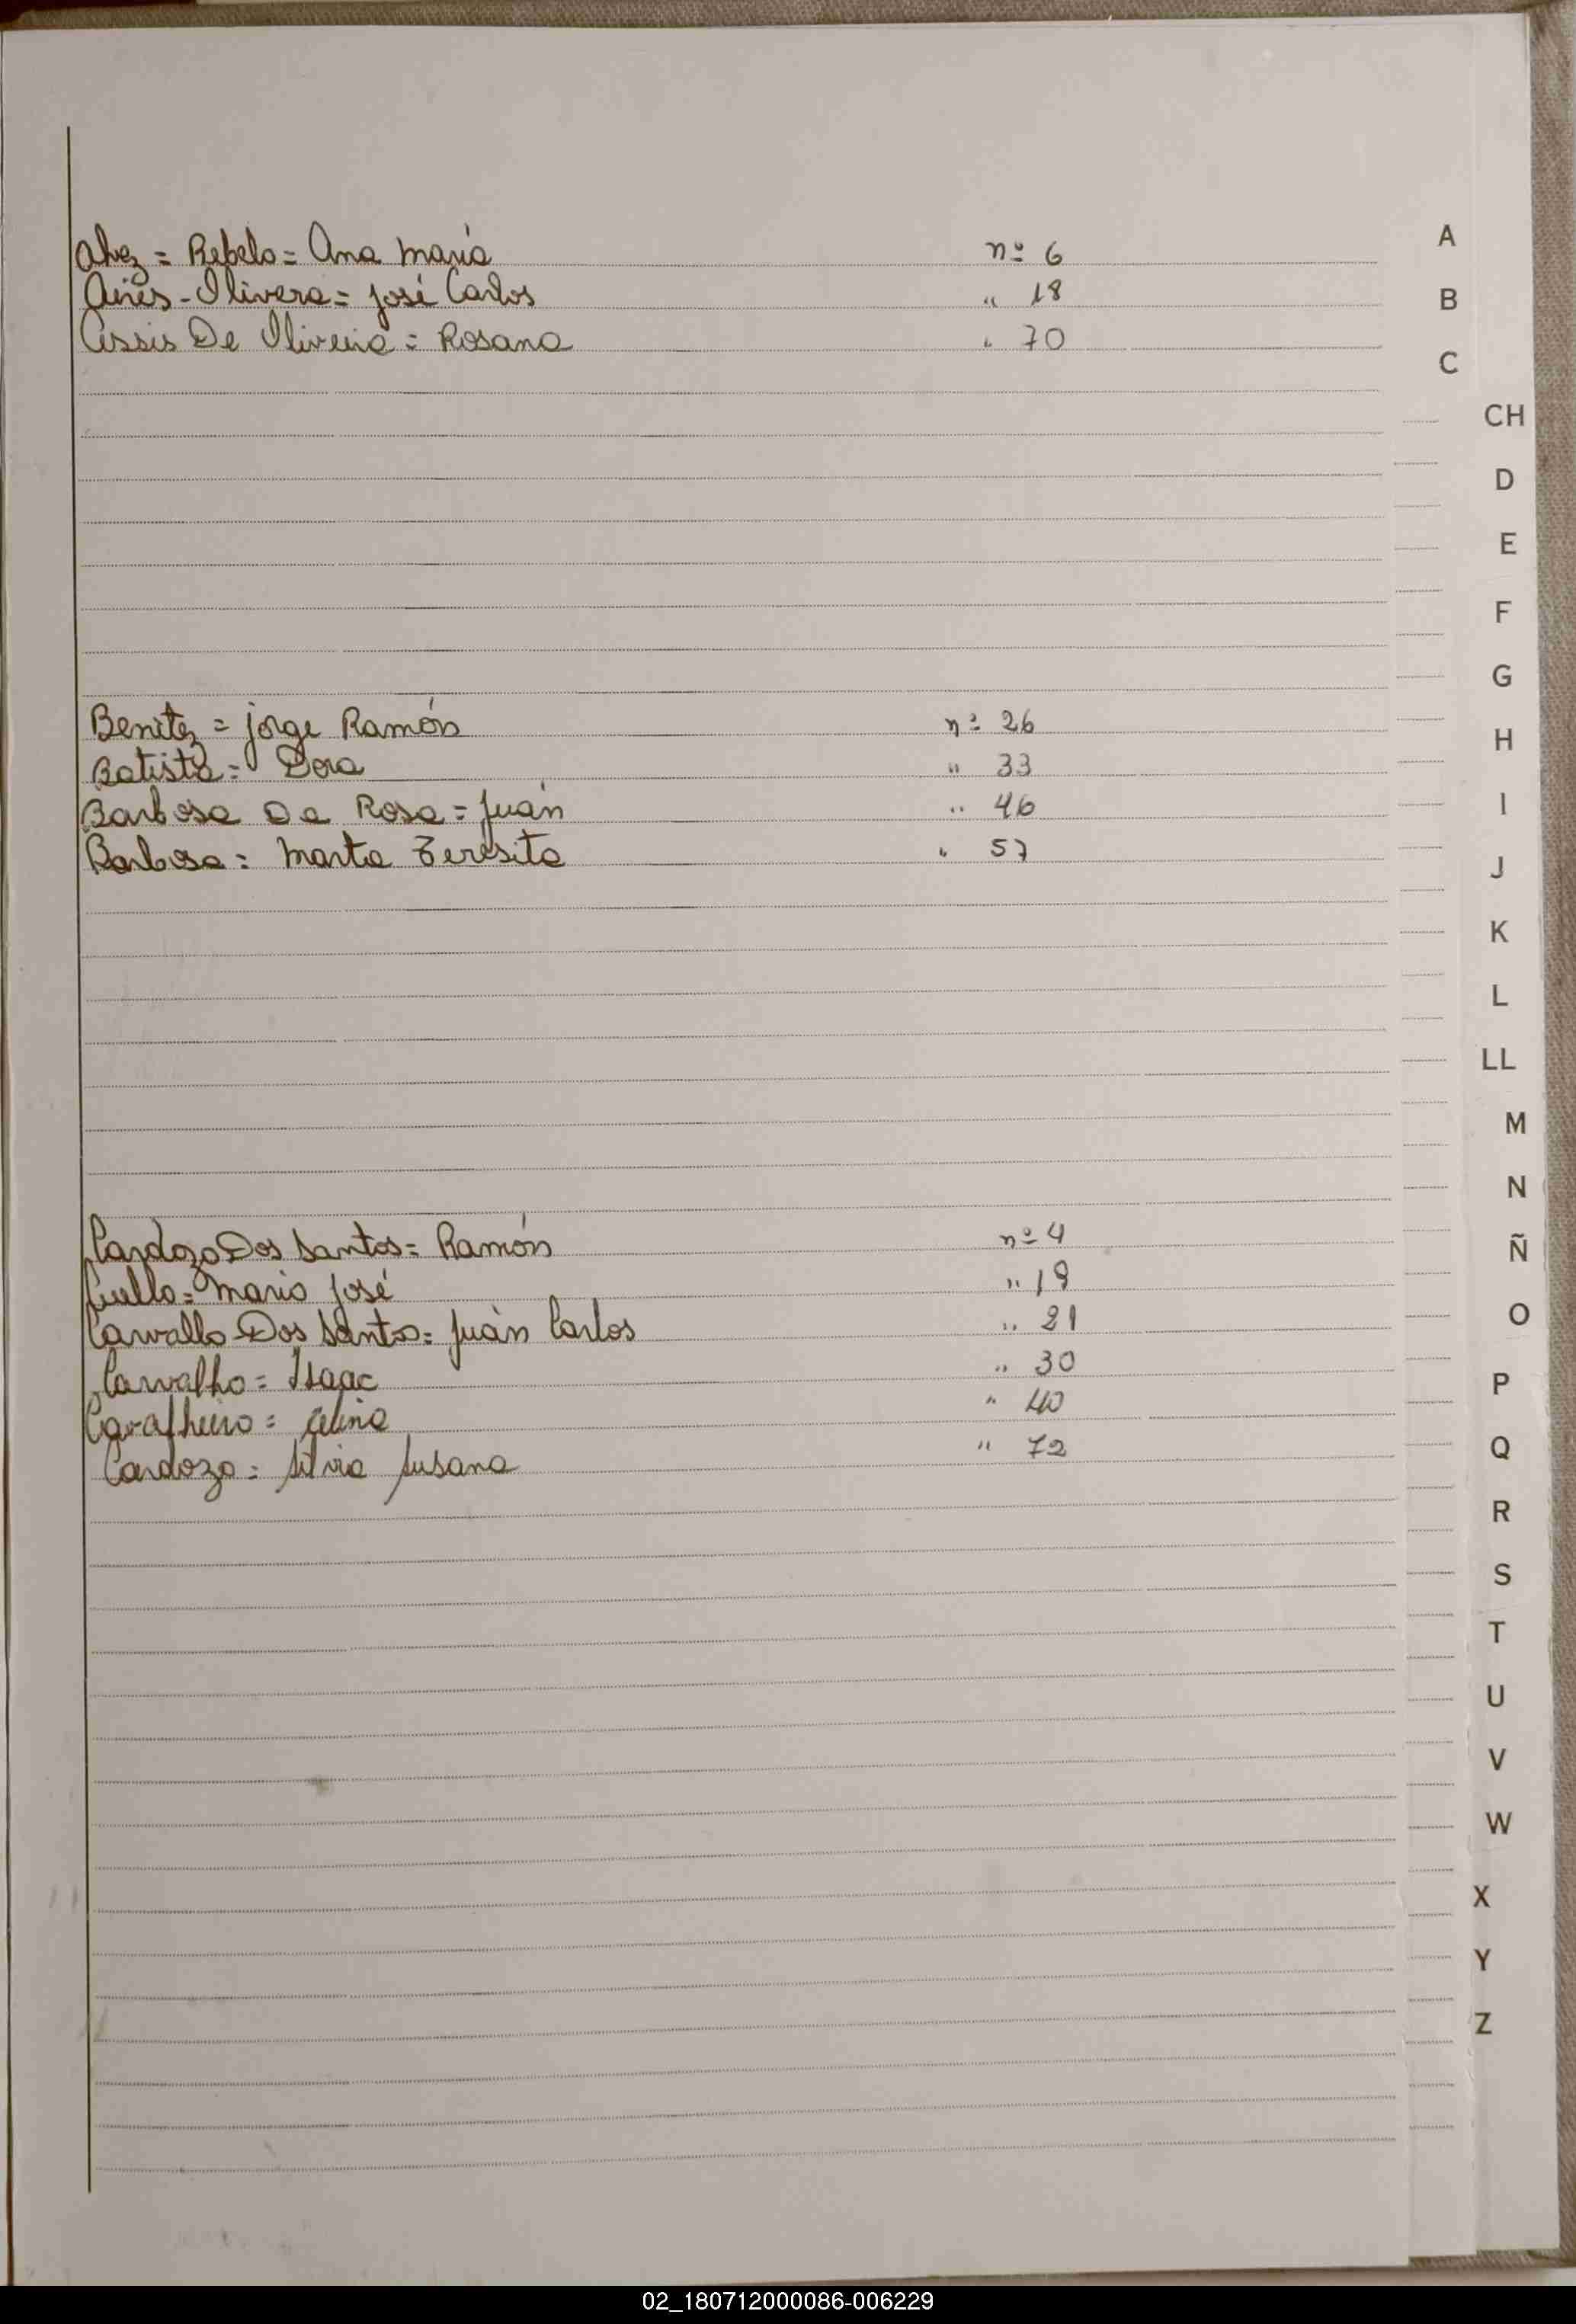 Alvez = Rebelo = Ana María nº 6
Aires - Olivera = José Carlos " 18
Assis De Oliveira = Rosana " 70
Benitez = Jorge Ramón nº 26
Batista = Dora " 33
Barbosa Da Rosa = Juan " 46
Barbosa = Marta Teresita " 57
Cardozo Dos Santos = Ramón nº 4
Cuello = Mario José " 19
Carvallo Dos Santos = Juán Carlos " 21
Carvalho = Isaac " 30
Cavalheiro = Celina " 40
Cardozo = Silvia Susana " 72
A
B
C
CH
D
E
F
G
H
I
J
K
L
LL
M
N
Ñ
O
P
Q
R
S
T
U
V
W
X
Y
Z
02_180712000086-006229